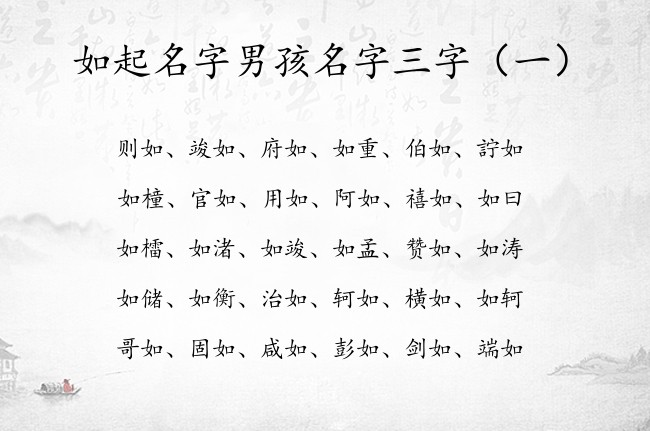 如起名字男孩名字三字（一）
则如、竣如、府如、如重、伯如、詝如
如橦、官如、用如、阿如、禧如、如曰
如櫺、如渚、如竣、如孟、赞如、如涛
如储、如衡、治如、轲如、横如、如轲
哥如、固如、咸如、彭如、剑如、端如